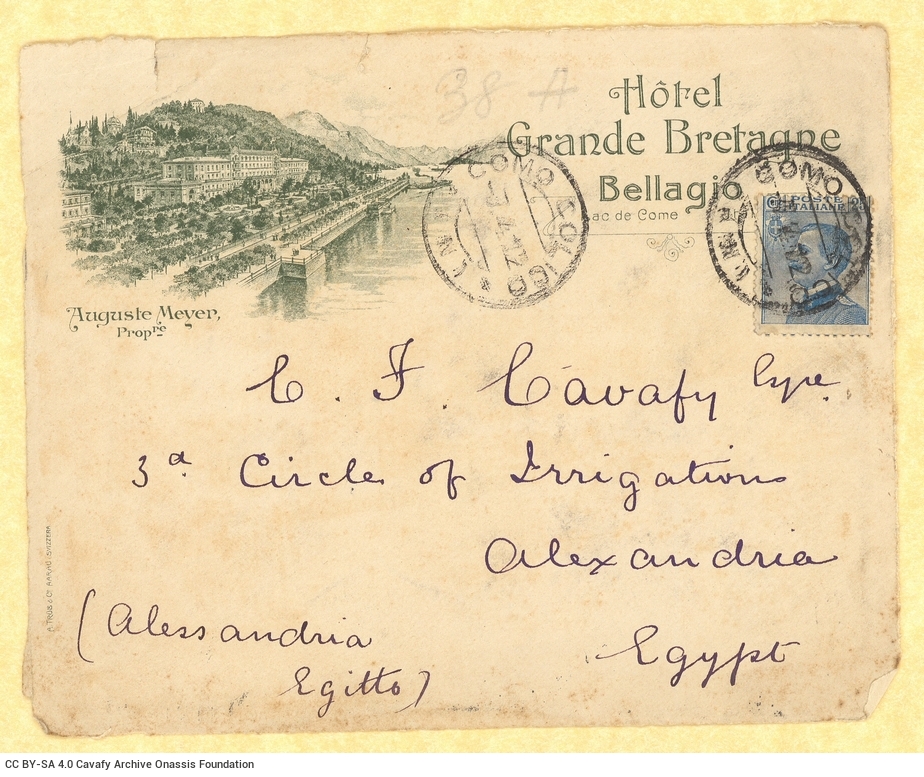 38 A
Hôtel
Grande Bretagne
Bellagio
Lac de Come
Auguste Meyer,
Propre
COMO COLICO
COMO COLICO
POSTE
ITALIANE
C. F. Cavafy Esqre.
3d Circle of Irrigations
Alexandria
Egypt
(Alessandria
Egitto)
CC BY-SA 4.0 Cavafy Archive Onassis Foundation